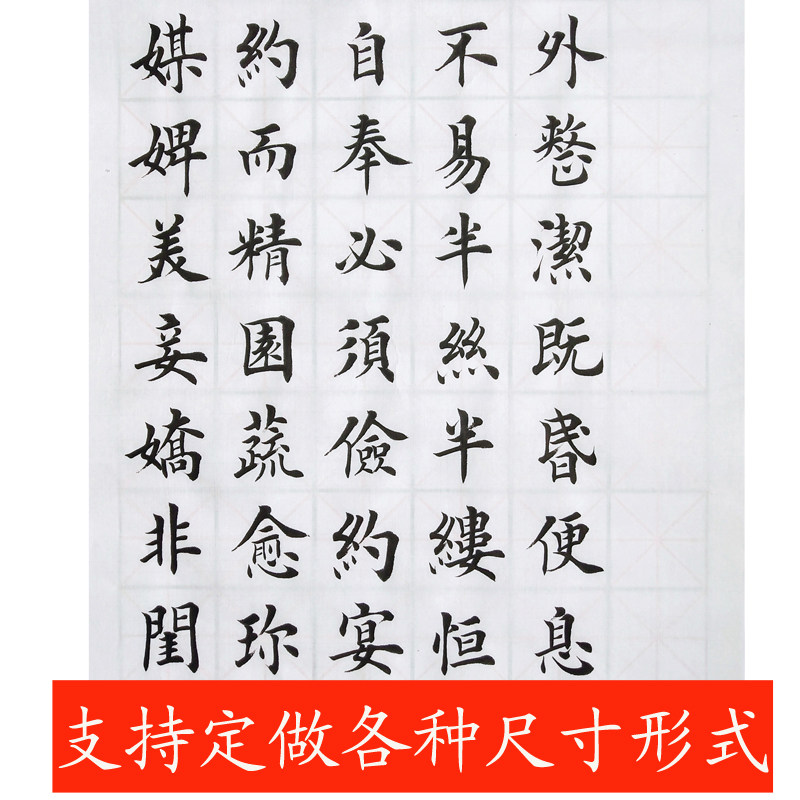 外整潔既昬便息
不易半絲半縷恒
自奉必須儉約宴
約而精園蔬愈珎
媒婢美妾嬌非閨
支持定做各种尺寸形式